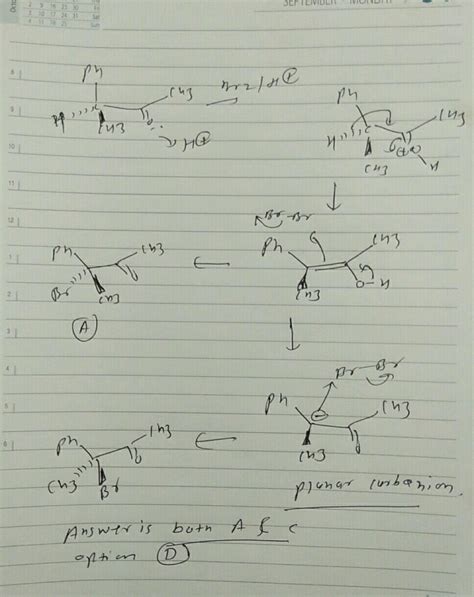 SEPTEMBER MONDAY
Ph CH3 Br2/H⊕
H CH3 O H⊕
Ph CH3
H CH3 O H
Br-Br
Ph CH3
CH3 O-H
Ph CH3
Br CH3 O
(A)
Br-Br
Ph ⊖ CH3
CH3 O
Ph CH3
CH3 Br O
planar carbanion.
Answer is both A & C
option (D)